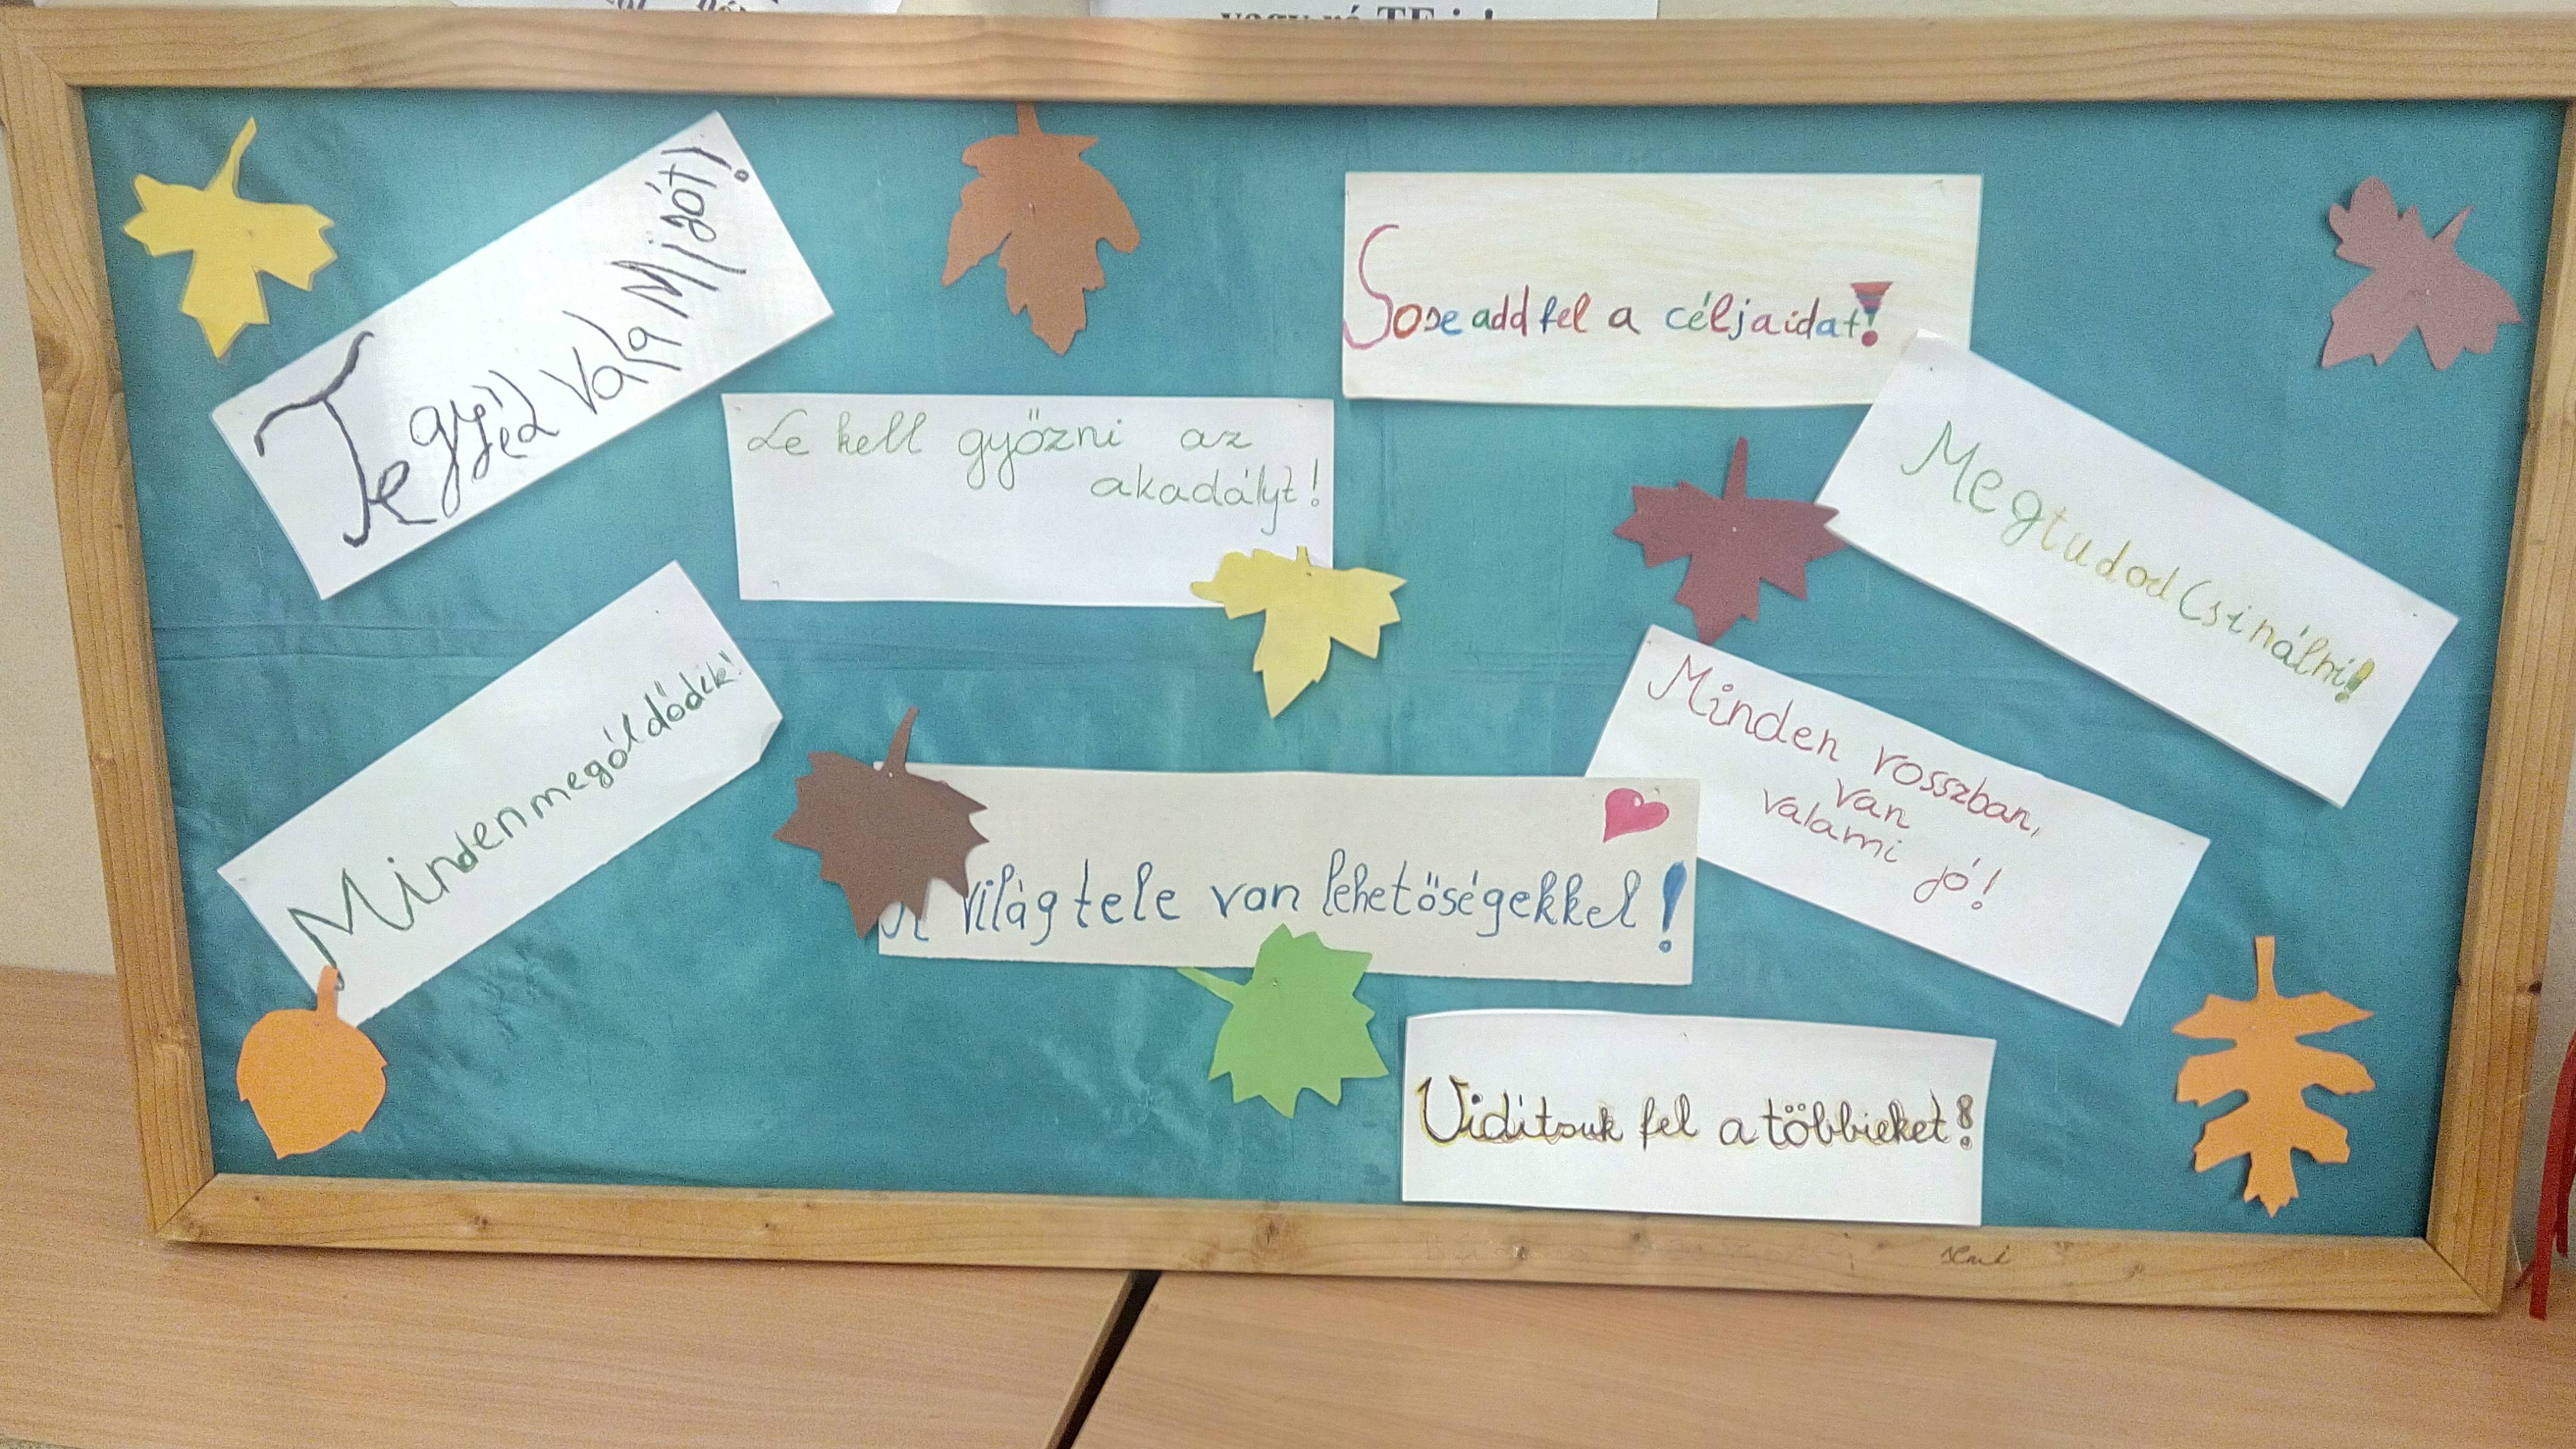 vagy rá TE is!
Tegyél valamijót!
Sose add fel a céljaidat!
Le kell győzni az
akadályt!
Megtudod Csinálni!
Mindenmególdódik!
Minden rosszban,
van
valami
jó!
A világ tele van lehetőségekkel!
Vidítsuk fel a többieket!